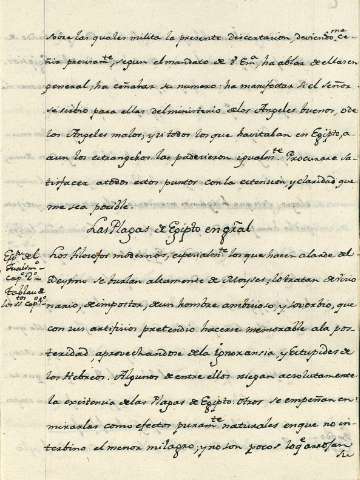 sobre las quales milita la presente disertacion, deviendome, ce-
ñir previamte, segun el mandato de V. Emª, ha ablar de ellas en
general, ha señalar su numero: ha manifestar si el señor
se sirbio para ellas del ministerio de los Angeles buenos, o de
los Angeles malos, y si todos los que havitaban en Egipto, a
aun los extrangeros las padecieron igualmte. Procurare sa-
tisfacer a todos estos puntos con la extension, y claridad que
me sea posible.
Las Plagas de Egipto en gral
Los filosofos modernos, especialmte los que hacen alarde del
Deysmo se burlan altamente de Moyses, lo tratan de visio
nario, de impostor, de un hombre ambisioso, y soverbio, que
con sus artificios pretendio hacerse memorable a la pos-
teridad, aprovechandose de la ignoransia, y estupides de
los Hebreos. Algunos de entre ellos niegan absolutamente
la existensia de las Plagas de Egipto: Otros se empeñan en
mirarlas como efectos puramte naturales en que no in-
terbino el menor milagro, y no son pocos los qe